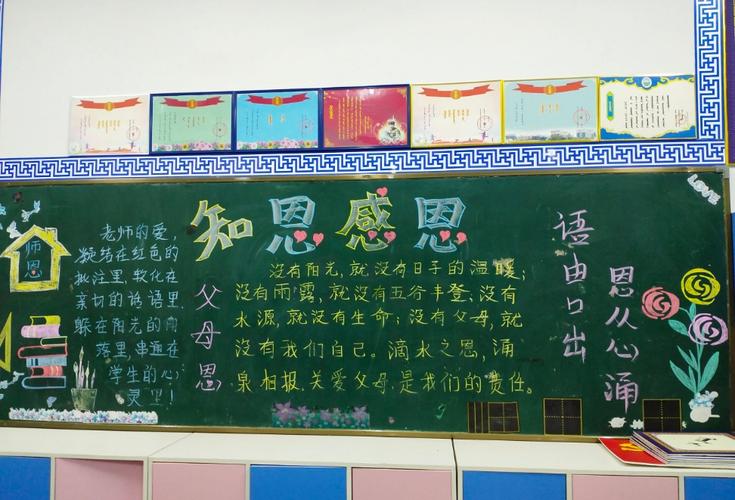 知恩感恩
LOVE
师恩
老师的爱,
凝结在红色的
批注里,软化在
亲切的话语里,
躲在阳光的角
落里,串通在
学生的心
灵里!
父母恩
没有阳光,就没有日子的温暖;
没有雨露,就没有五谷丰登;没有
水源,就没有生命;没有父母,就
没有我们自己。滴水之恩,涌
泉相报,关爱父母,是我们的责任。
语由口出
恩从心涌